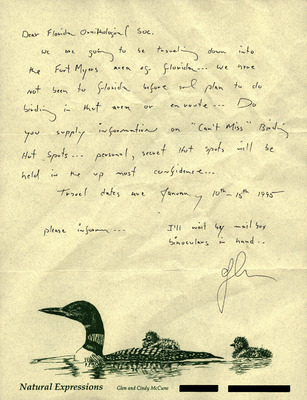 Dear Florida Ornithological Soc.
We are going to be traveling down into
the Fort Myers area of Florida... We have
not been to Florida before and plan to do
birding in that area or enroute... Do
you supply information on "Can't Miss" Birding
Hot Spots... personal, secret hot spots will be
held in the up most confidence...
Travel dates are January 10th-15th 1995
please inform...
I'll wait by mailbox
binoculars in hand...
Glen
Natural Expressions
Glen and Cindy McCune